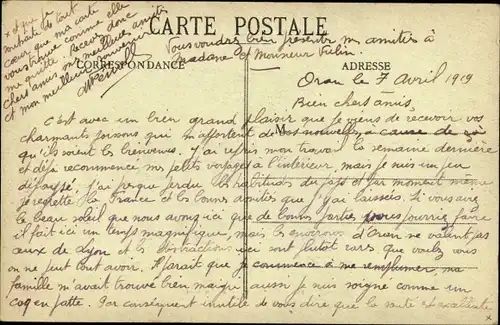 x et que je
souhaite de tout
cœur que ma carte
vous trouve comme elle
me quitte. Recevez donc
chers amis mes meilleures amitiés
et mon meilleur souvenir
CARTE POSTALE
Vous voudrez bien présenter m, amitiés à
Madame et Monsieur
CORRESPONDANCE
ADRESSE
Oran le 7 Avril 1919
Bien chers amis,
C'est avec un bien grand plaisir que je viens de recevoir vos
charmants joissons qui m'apportent de vos nouvelles, à cause de ça
M
qu'ils soient les bienvenus. J'ai repris mon travail la semaine dernière
et déjà recommencé mes petits voyages à l'intérieur, mais je suis un peu
J'ai presque perdu les habitudes du pays et par moment même
je regrette la France et les bonnes amitiés que j'ai laissées. Si vous avez
le beau soleil que nous avons ici que de bonnes parties vous pourriez faire
il fait ici un temps magnifique, mais les environs d'Oran ne valent pas
ceux de Lyon et les distractions ici sont plutôt rares que voulez vous
on ne peut tout avoir. Il parait que je commence à me remplumer, ma
famille m'avait trouvé bien maigre aussi je suis soigné comme un
coq en patte. Par conséquent inutile de vous dire que la santé est excellente
x